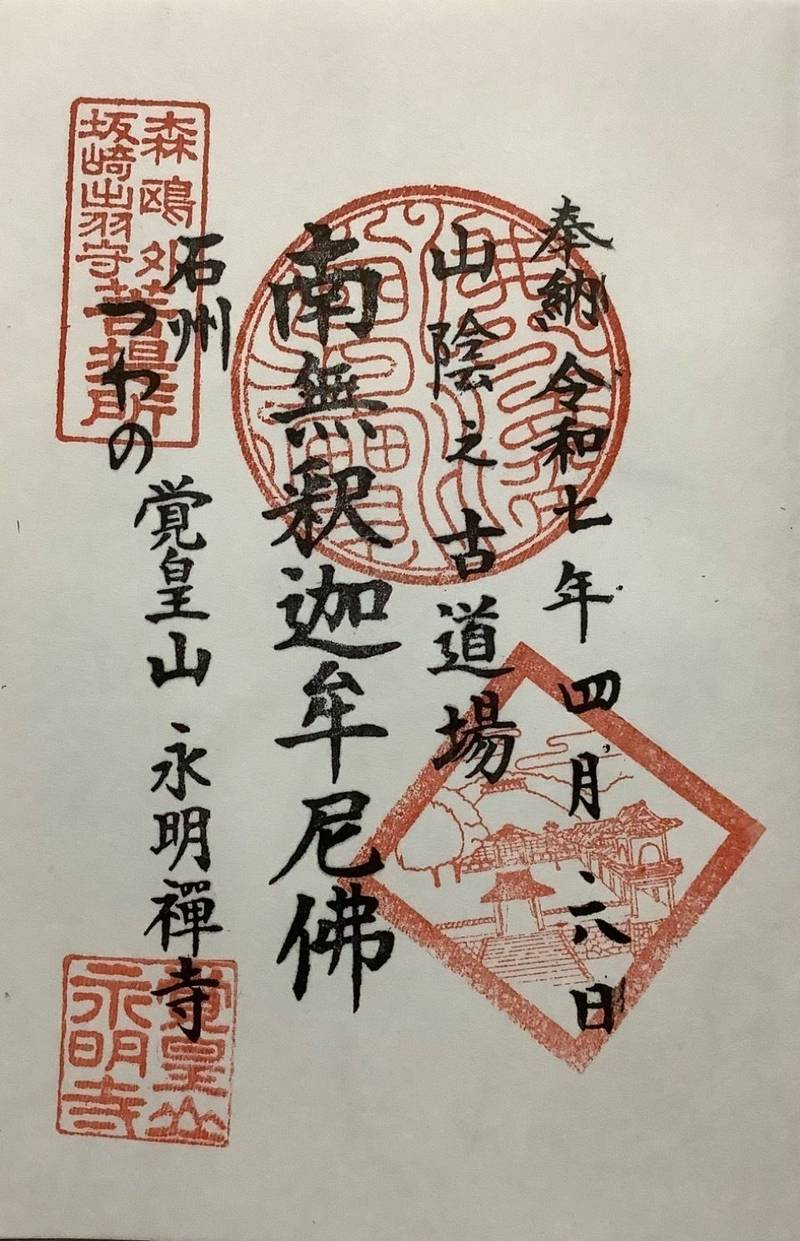 奉納 令和七年四月六日
山陰之古道場
南無釈迦牟尼佛
石州
つわの
覚皇山 永明禪寺
森鴎外
坂崎出羽守
菩提所
覺皇山
永明寺